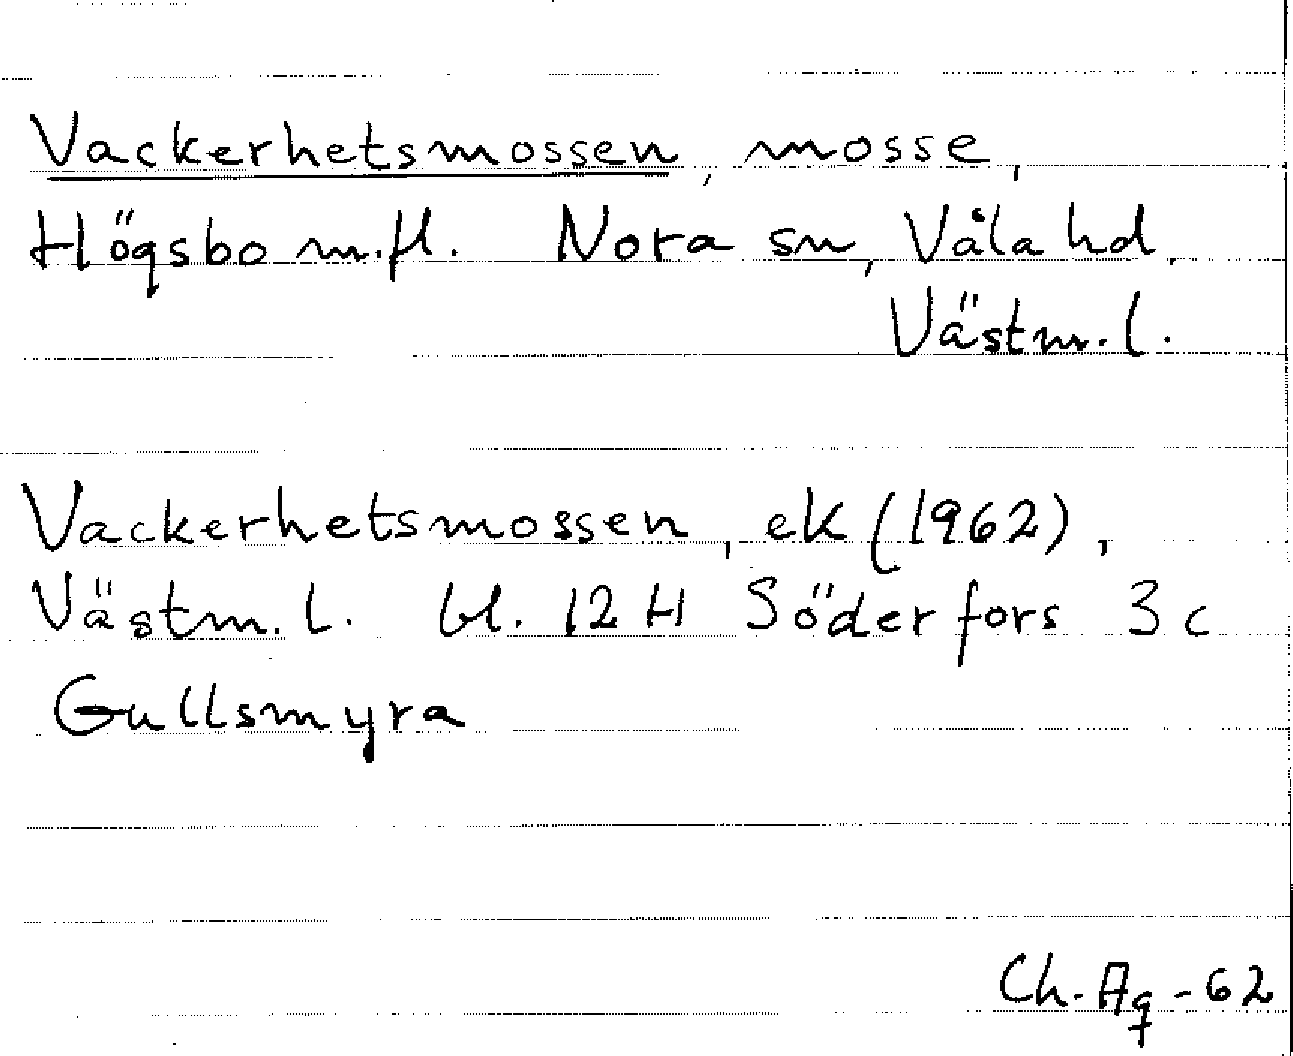 Vackerhetsmossen, mosse,
Högsbo m.fl. Nora sn, Våla hd,
Västm.l.
Vackerhetsmossen, ek (1962),
Västm.l. bl. 12 H Söderfors 3 c
Gullsmyra
Ch. Ag - 62